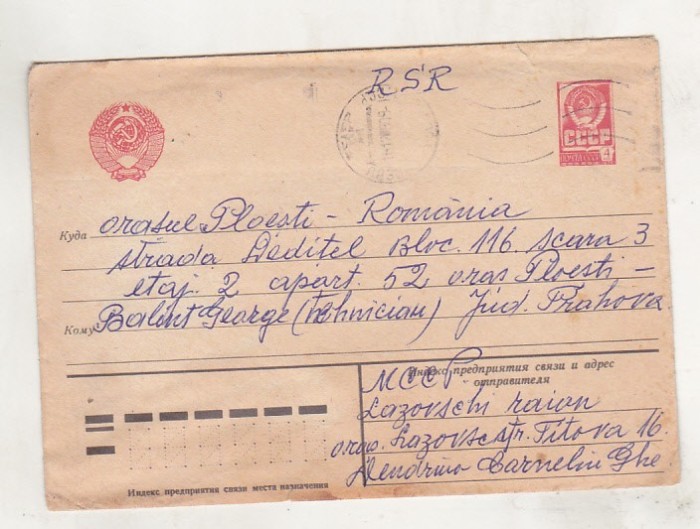 RSR
СССР
ПОЧТА 4
Куда orasul Ploesti - România
strada Deditel Bloc. 116 scara 3
etaj. 2 apart. 52 oras Ploesti -
Кому Balint George (tehnician) Jud. Prahova
Индекс предприятия связи и адрес
отправителя
МССР
Lazovschi raion
oraș. Lazovsc str. Titova 16
Corneliu Ghe
Индекс предприятия связи места назначения